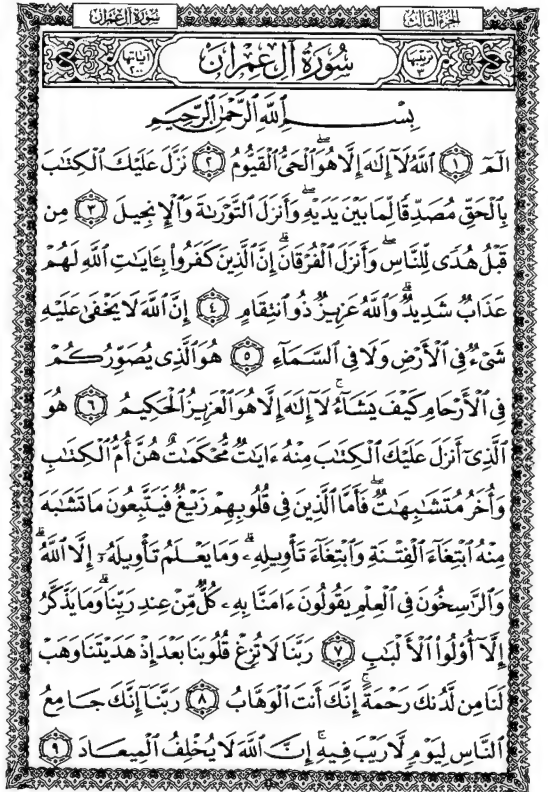 سُورَةُ آلِ عِمْرَان
الجُزءُ الثَّالِثُ
ترتيبها ٣
سُورَةُ آلِ عِمْرَان
آياتها ٢٠٠
بِسْمِ ٱللَّهِ ٱلرَّحْمَٰنِ ٱلرَّحِيمِ
الٓمٓ ١ ٱللَّهُ لَآ إِلَٰهَ إِلَّا هُوَ ٱلْحَىُّ ٱلْقَيُّومُ ٢ نَزَّلَ عَلَيْكَ ٱلْكِتَٰبَ
بِٱلْحَقِّ مُصَدِّقًا لِّمَا بَيْنَ يَدَيْهِ وَأَنزَلَ ٱلتَّوْرَىٰةَ وَٱلْإِنجِيلَ ٣ مِن
قَبْلُ هُدًى لِّلنَّاسِ وَأَنزَلَ ٱلْفُرْقَانَ ۗ إِنَّ ٱلَّذِينَ كَفَرُوا۟ بِـَٔايَٰتِ ٱللَّهِ لَهُمْ
عَذَابٌ شَدِيدٌ ۗ وَٱللَّهُ عَزِيزٌ ذُو ٱنتِقَامٍ ٤ إِنَّ ٱللَّهَ لَا يَخْفَىٰ عَلَيْهِ
شَىْءٌ فِى ٱلْأَرْضِ وَلَا فِى ٱلسَّمَآءِ ٥ هُوَ ٱلَّذِى يُصَوِّرُكُمْ
فِى ٱلْأَرْحَامِ كَيْفَ يَشَآءُ ۚ لَآ إِلَٰهَ إِلَّا هُوَ ٱلْعَزِيزُ ٱلْحَكِيمُ ٦ هُوَ
ٱلَّذِىٓ أَنزَلَ عَلَيْكَ ٱلْكِتَٰبَ مِنْهُ ءَايَٰتٌ مُّحْكَمَٰتٌ هُنَّ أُمُّ ٱلْكِتَٰبِ
وَأُخَرُ مُتَشَٰبِهَٰتٌ ۖ فَأَمَّا ٱلَّذِينَ فِى قُلُوبِهِمْ زَيْغٌ فَيَتَّبِعُونَ مَا تَشَٰبَهَ
مِنْهُ ٱبْتِغَآءَ ٱلْفِتْنَةِ وَٱبْتِغَآءَ تَأْوِيلِهِۦ ۗ وَمَا يَعْلَمُ تَأْوِيلَهُۥٓ إِلَّا ٱللَّهُ ۗ
وَٱلرَّٰسِخُونَ فِى ٱلْعِلْمِ يَقُولُونَ ءَامَنَّا بِهِۦ كُلٌّ مِّنْ عِندِ رَبِّنَا ۗ وَمَا يَذَّكَّرُ
إِلَّآ أُو۟لُوا۟ ٱلْأَلْبَٰبِ ٧ رَبَّنَا لَا تُزِغْ قُلُوبَنَا بَعْدَ إِذْ هَدَيْتَنَا وَهَبْ
لَنَا مِن لَّدُنكَ رَحْمَةً ۚ إِنَّكَ أَنتَ ٱلْوَهَّابُ ٨ رَبَّنَآ إِنَّكَ جَامِعُ
ٱلنَّاسِ لِيَوْمٍ لَّا رَيْبَ فِيهِ ۚ إِنَّ ٱللَّهَ لَا يُخْلِفُ ٱلْمِيعَادَ ٩